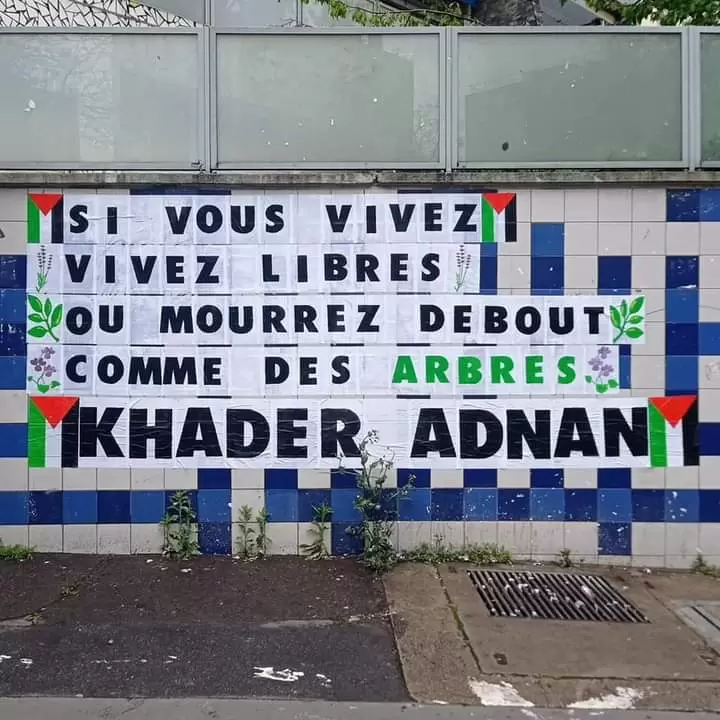 SI VOUS VIVEZ
VIVEZ LIBRES
OU MOURREZ DEBOUT
COMME DES ARBRES
KHADER ADNAN